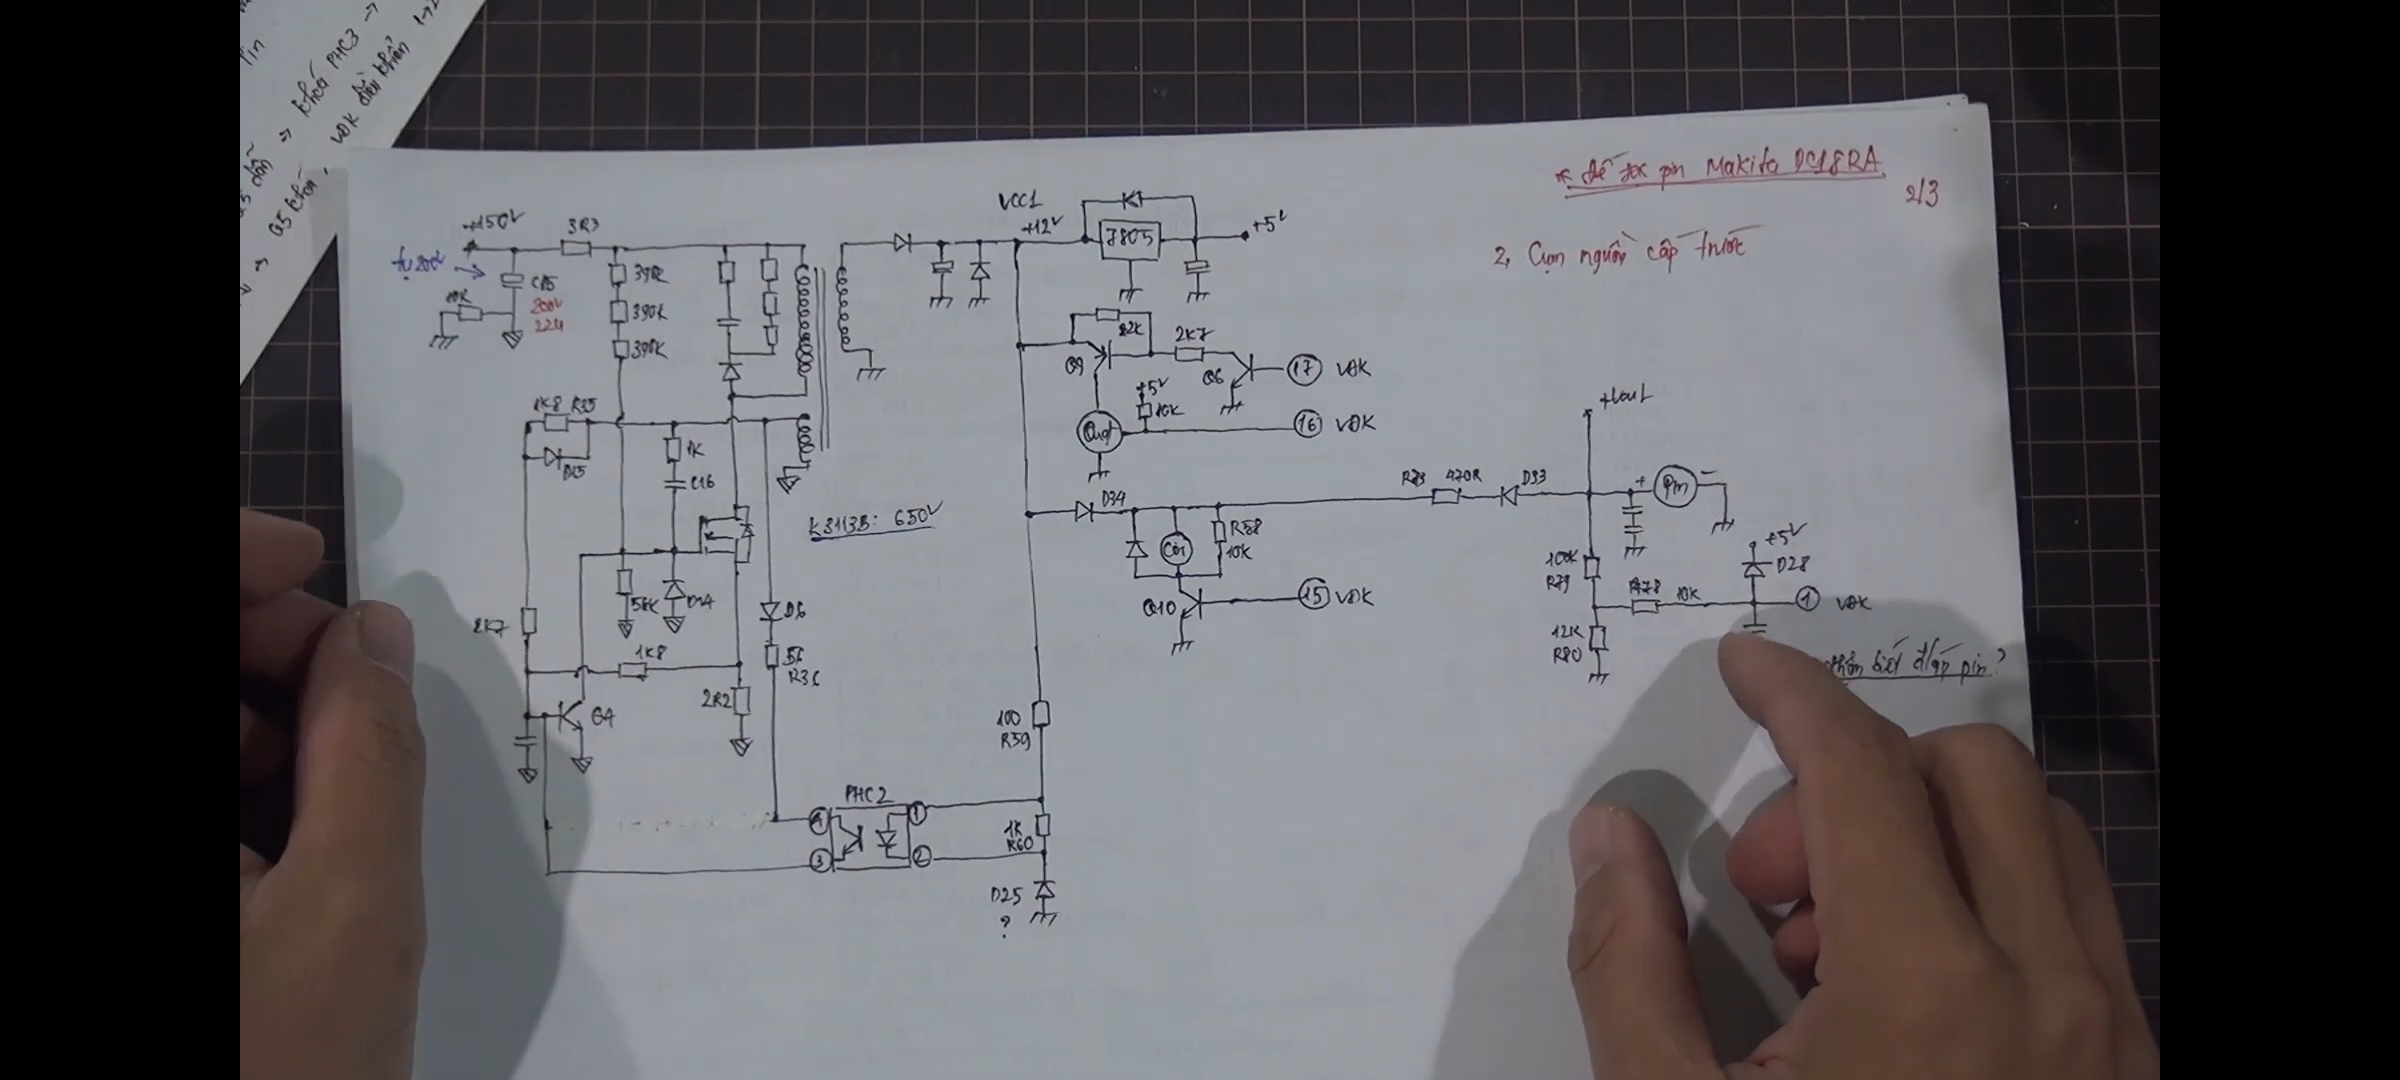 khoá PHC3 →
Q5 dẫn ⇒
Q5 khoá, VĐK điều khiển 1→2
* đế sạc pin Makita DC18RA
2/3
2, Cụm nguồn cấp trước
+150V
3R3
tụ 200V
C15
200V
22u
10K
390K
390K
390K
VCC1
+12V
7805
+5V
22K
Q9
2K7
Q6
17 VĐK
+5V
10K
Quạt
16 VĐK
1K8 R35
D15
1K
C16
K3113B: 650V
56K
D14
D6
56
2K7
1K8
2R2
Q4
D34
Còi
R58
10K
Q10
15 VĐK
R83 470R
D33
+Vout
+ Pin -
100K
R79
R78 10K
+5V
D28
1 VĐK
12K
R80
nhận biết đ/áp pin?
100
R59
PHC2
4
1
3
2
1K
R60
D25
?